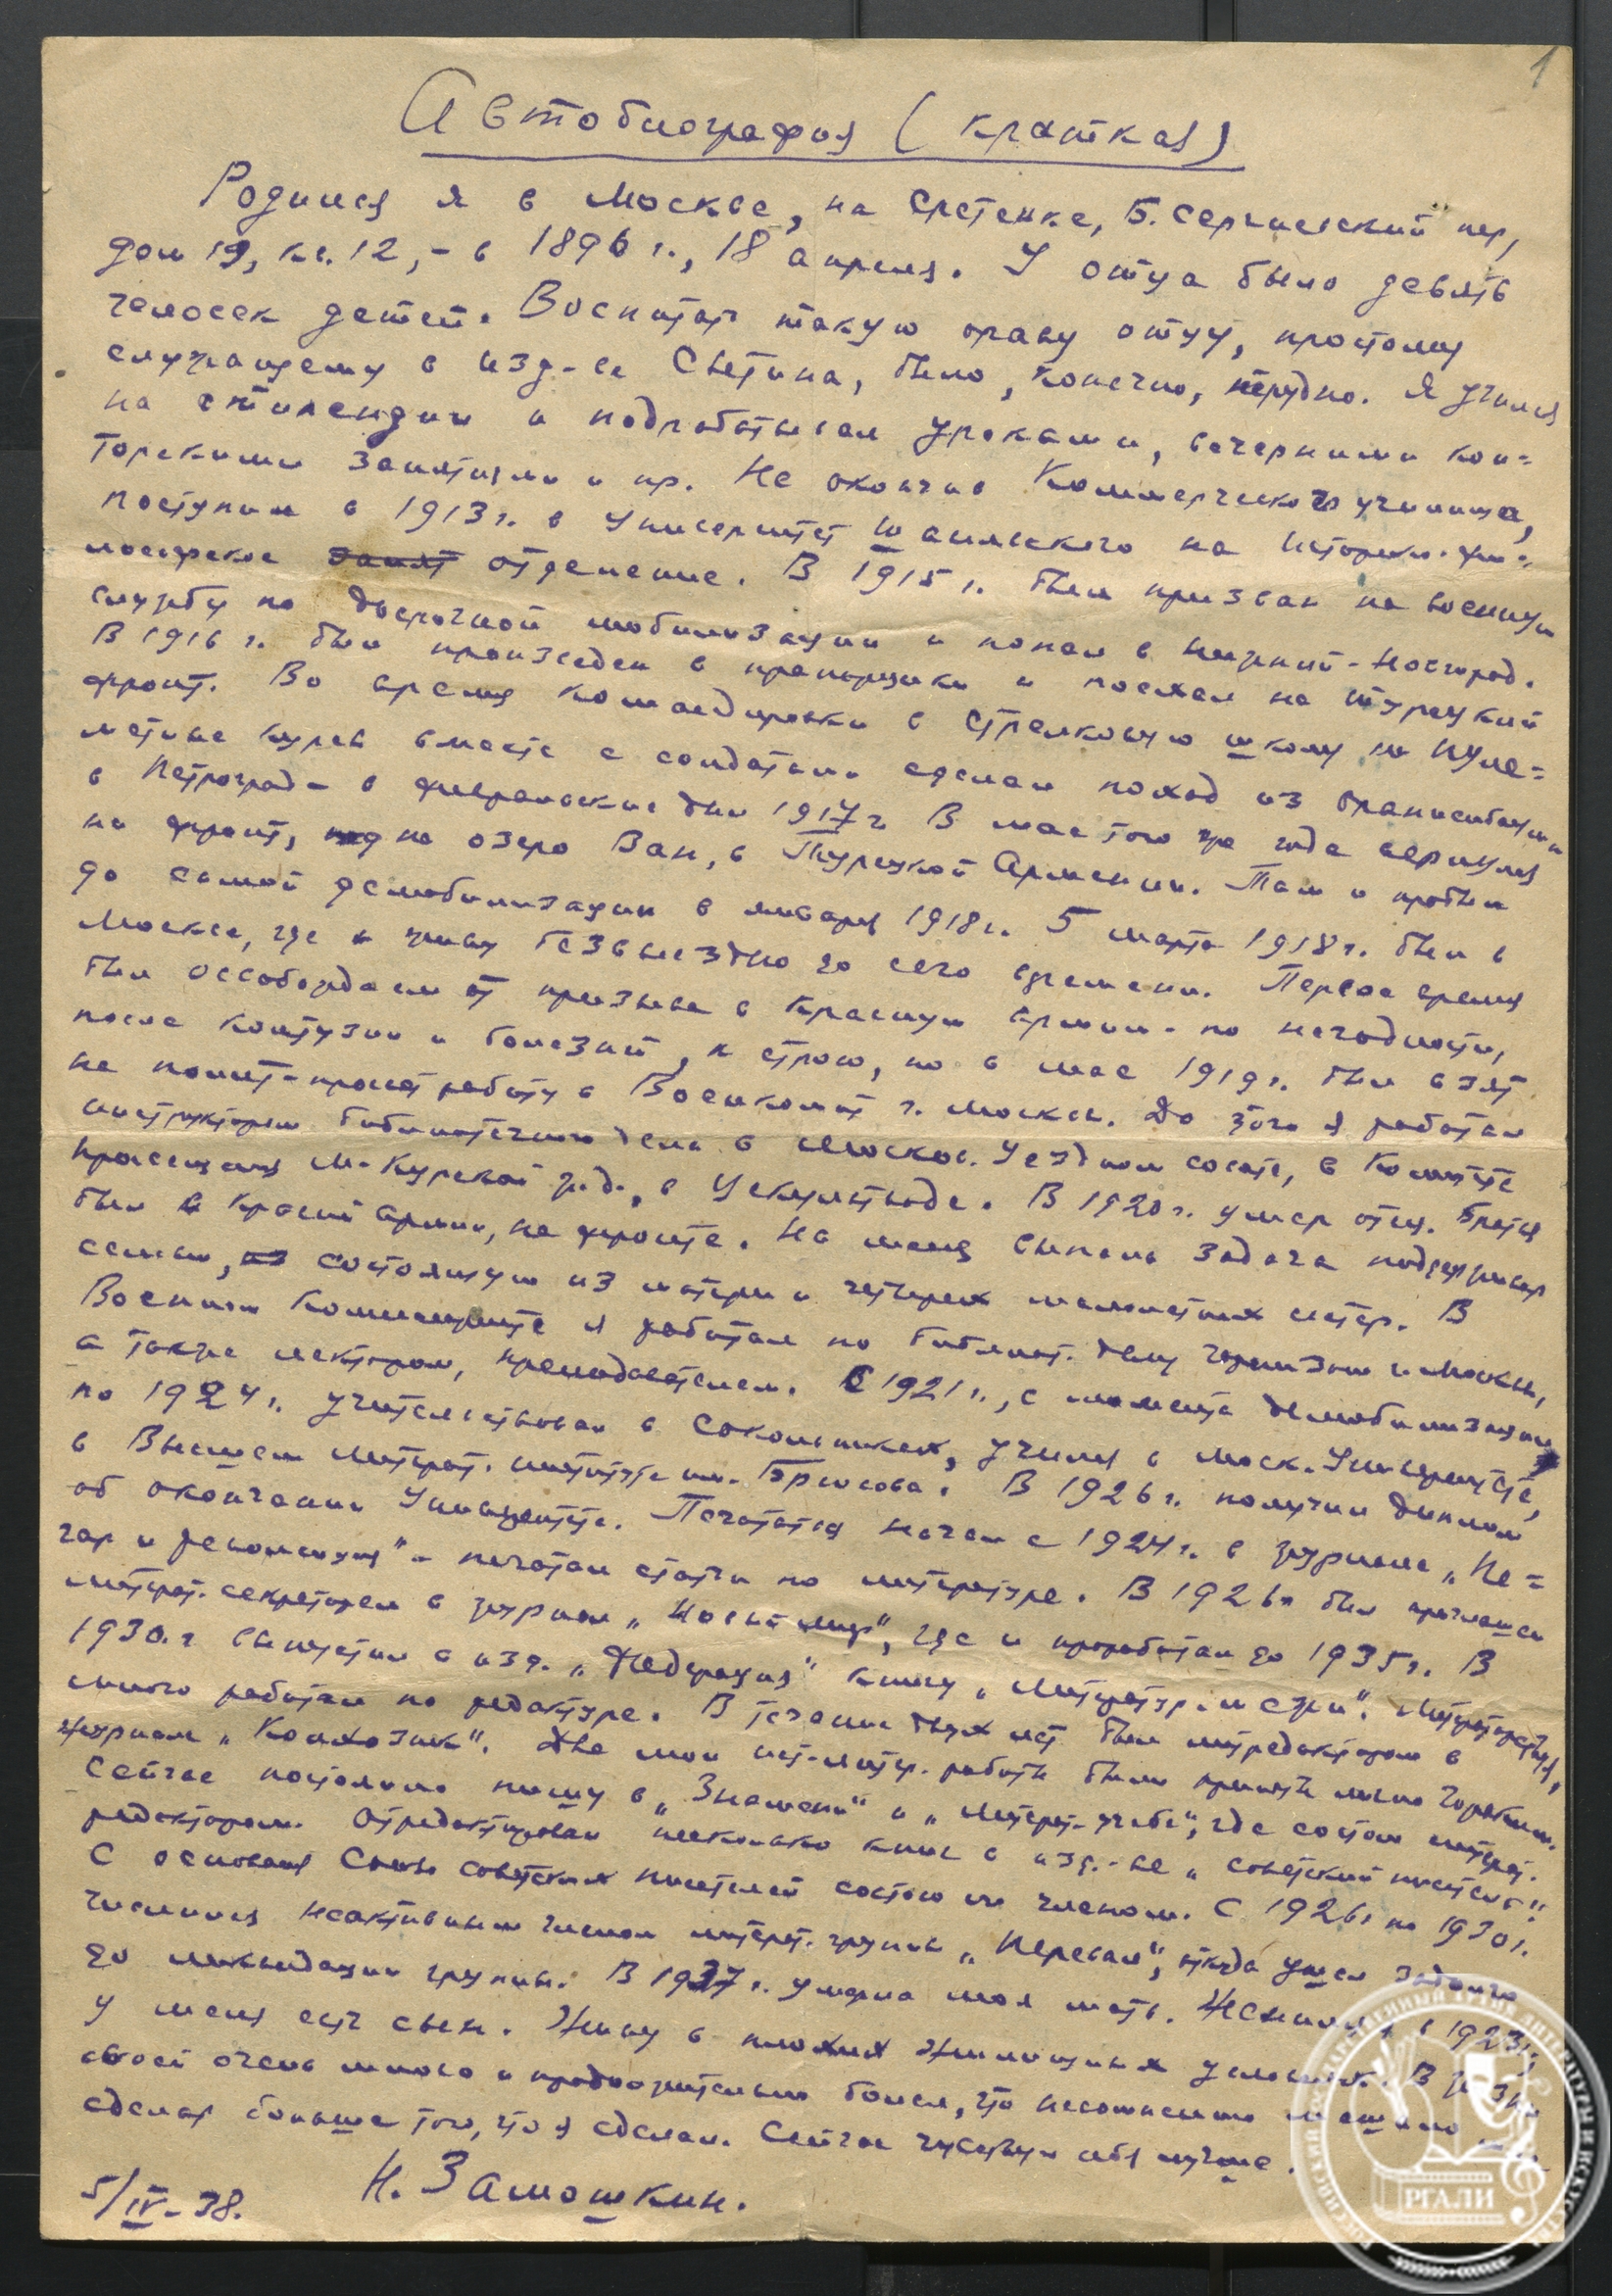 1
Автобиография (краткая)
Родился я в Москве, на Сретенке, Б. Сергиевский пер,
дом 19, кв. 12, – в 1896 г., 18 апреля. У отца было девять
человек детей. Воспитать такую ораву отцу, простому
служащему в изд-ве Сытина, было, конечно, трудно. Я учился
на стипендии и подрабатывал уроками, вечерними кон=
торскими занятиями и пр. Не окончив Коммерческого училища,
поступил в 1913 г. в Университет Шанявского на Историко-фи=
лософское отделение. В 1915 г. был призван на военную
службу по досрочной мобилизации и попал в Нижний-Новгород.
В 1916 г. был произведен в прапорщики и поехал на турецкий
фронт. Во время командировки в стрелковую школу на пуле=
метные курсы вместе с солдатами сделал поход из Ораниенбаума
в Петроград – в февральские дни 1917 г. В мае того же года вернулся
на фронт, на озеро Ван, в Турецкой Армении. Там и пробыл
до самой демобилизации в январе 1918 г. 5 марта 1918 г. был в
Москве, где и живу безвыездно до сего времени. Первое время
был освобожден от призыва в Красную Армию – по негодности,
после контузии и болезней, к строю, но в мае 1919 г. был взят
на полит-просвет работу в Военкомат г. Москвы. До этого я работал
инструктором библиотечного дела в Москов. Уездном совете, в Комитете
просвещения М-Курской ж.д., в Усекультводе. В 1920 г. умер отец. Братья
были в Красной Армии, на фронте. На меня выпала задача поддерживать
семью, состоящую из матери и четырех малолетних сестер. В
Военном Комиссариате я работал по библиот. делу гарнизона г. Москвы,
а также лектором, преподавателем. С 1921 г., с момента демобилизации
по 1924 г. учительствовал в Сокольниках, учился в Моск. Университете,
в Высшем Литерат. институте им. Брюсова. В 1926 г. получил диплом
об окончании Университета. Печататься начал с 1924 г. в журнале „Пе=
чать и революция" – печатал статьи по литературе. В 1926 г. был приглашен
литерат. секретарем в журнал „Новый мир", где и проработал до 1935 г. В
1930 г. выпустил в изд. „Федерация" книгу „Литература и
много работал по редактуре. В течение двух лет был литредактором в
журнале „Колхозник". Две мои ист-литер. работы были приняты лично Горьким.
Сейчас постоянно пишу в „Знамени" и „Литерат. учебе", где состою литерат.
редактором. Отредактировал несколько книг в изд.-ве „Советский писатель".
С основания Союза советских писателей состою его членом. С 1926 г. по 1930 г.
числился неактивным членом литерат. группы „Перевал", откуда ушел задолго
до ликвидации группы. В 1937 г. умерла моя мать. Женился в 1923 г.,
у меня есть сын. Живу в плохих жилищных условиях. В жизни
своей очень много и продолжительно болел, что несомненно мешало
сделать больше того, что я сделал. Сейчас чувствую себя лучше.
5/IV-38.  Н. Замошкин.
РГАЛИ
РОССИЙСКИЙ ГОСУДАРСТВЕННЫЙ АРХИВ ЛИТЕРАТУРЫ И ИСКУССТВА